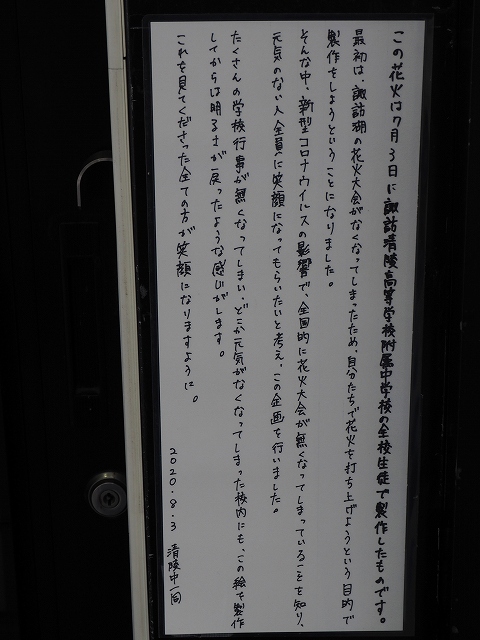 この花火は7月3日に諏訪清陵高等学校附属中学校の全校生徒で製作したものです。
最初は、諏訪湖の花火大会がなくなってしまったため、自分たちで花火を打ち上げようという目的で
製作をしようということになりました。
そんな中、新型コロナウイルスの影響で、全国的に花火大会が無くなってしまっていることを知り、
元気のない人全員に笑顔になってもらいたいと考え、この企画を行いました。
たくさんの学校行事が無くなってしまい、どこか元気がなくなってしまった校内にも、この絵を製作
してからは明るさが戻ったような感じがします。
これを見てくださった全ての方が笑顔になりますように。
2020.8.3 清陵中一同